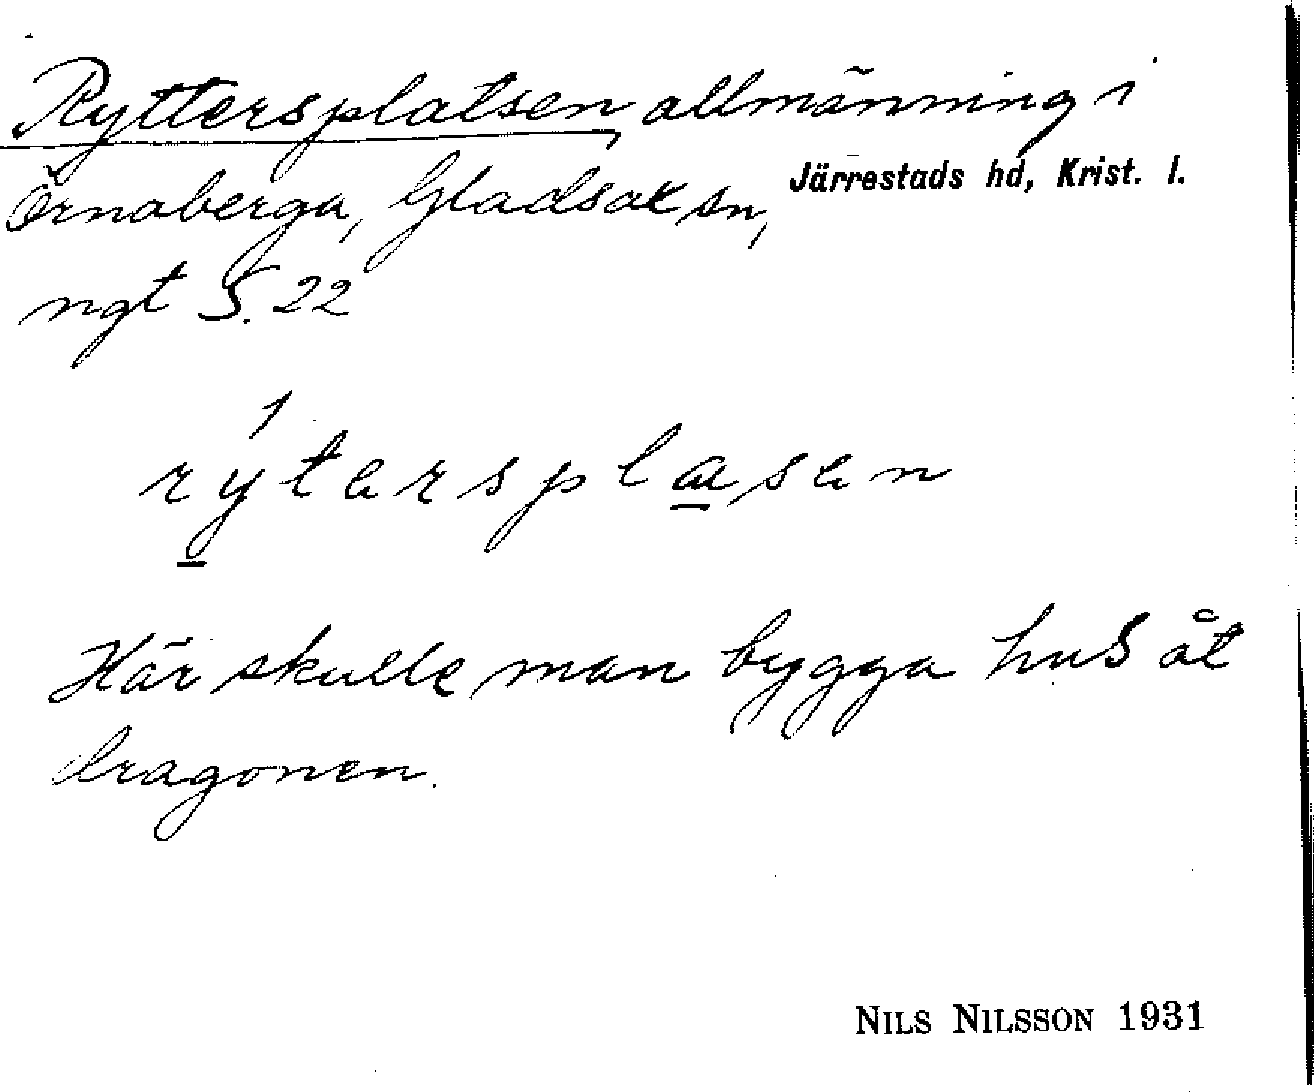 Ryttersplatsen allmänning i
Örnaberga, Gladsax sn, Järrestads hd, Krist. l.
ngt S. 22
rytersplasen
Här skulle man bygga hus åt
dragonen.
NILS NILSSON 1931